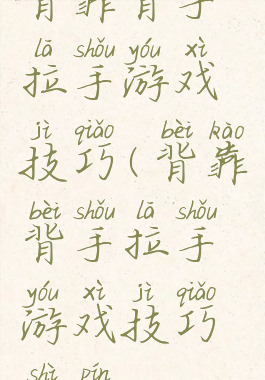 背靠背手
lā shǒu yóu xì
拉手游戏
jì qiǎo bèi kào
技巧(背靠
bèi shǒu lā shǒu
背手拉手
yóu xì jì qiǎo
游戏技巧
shì pín